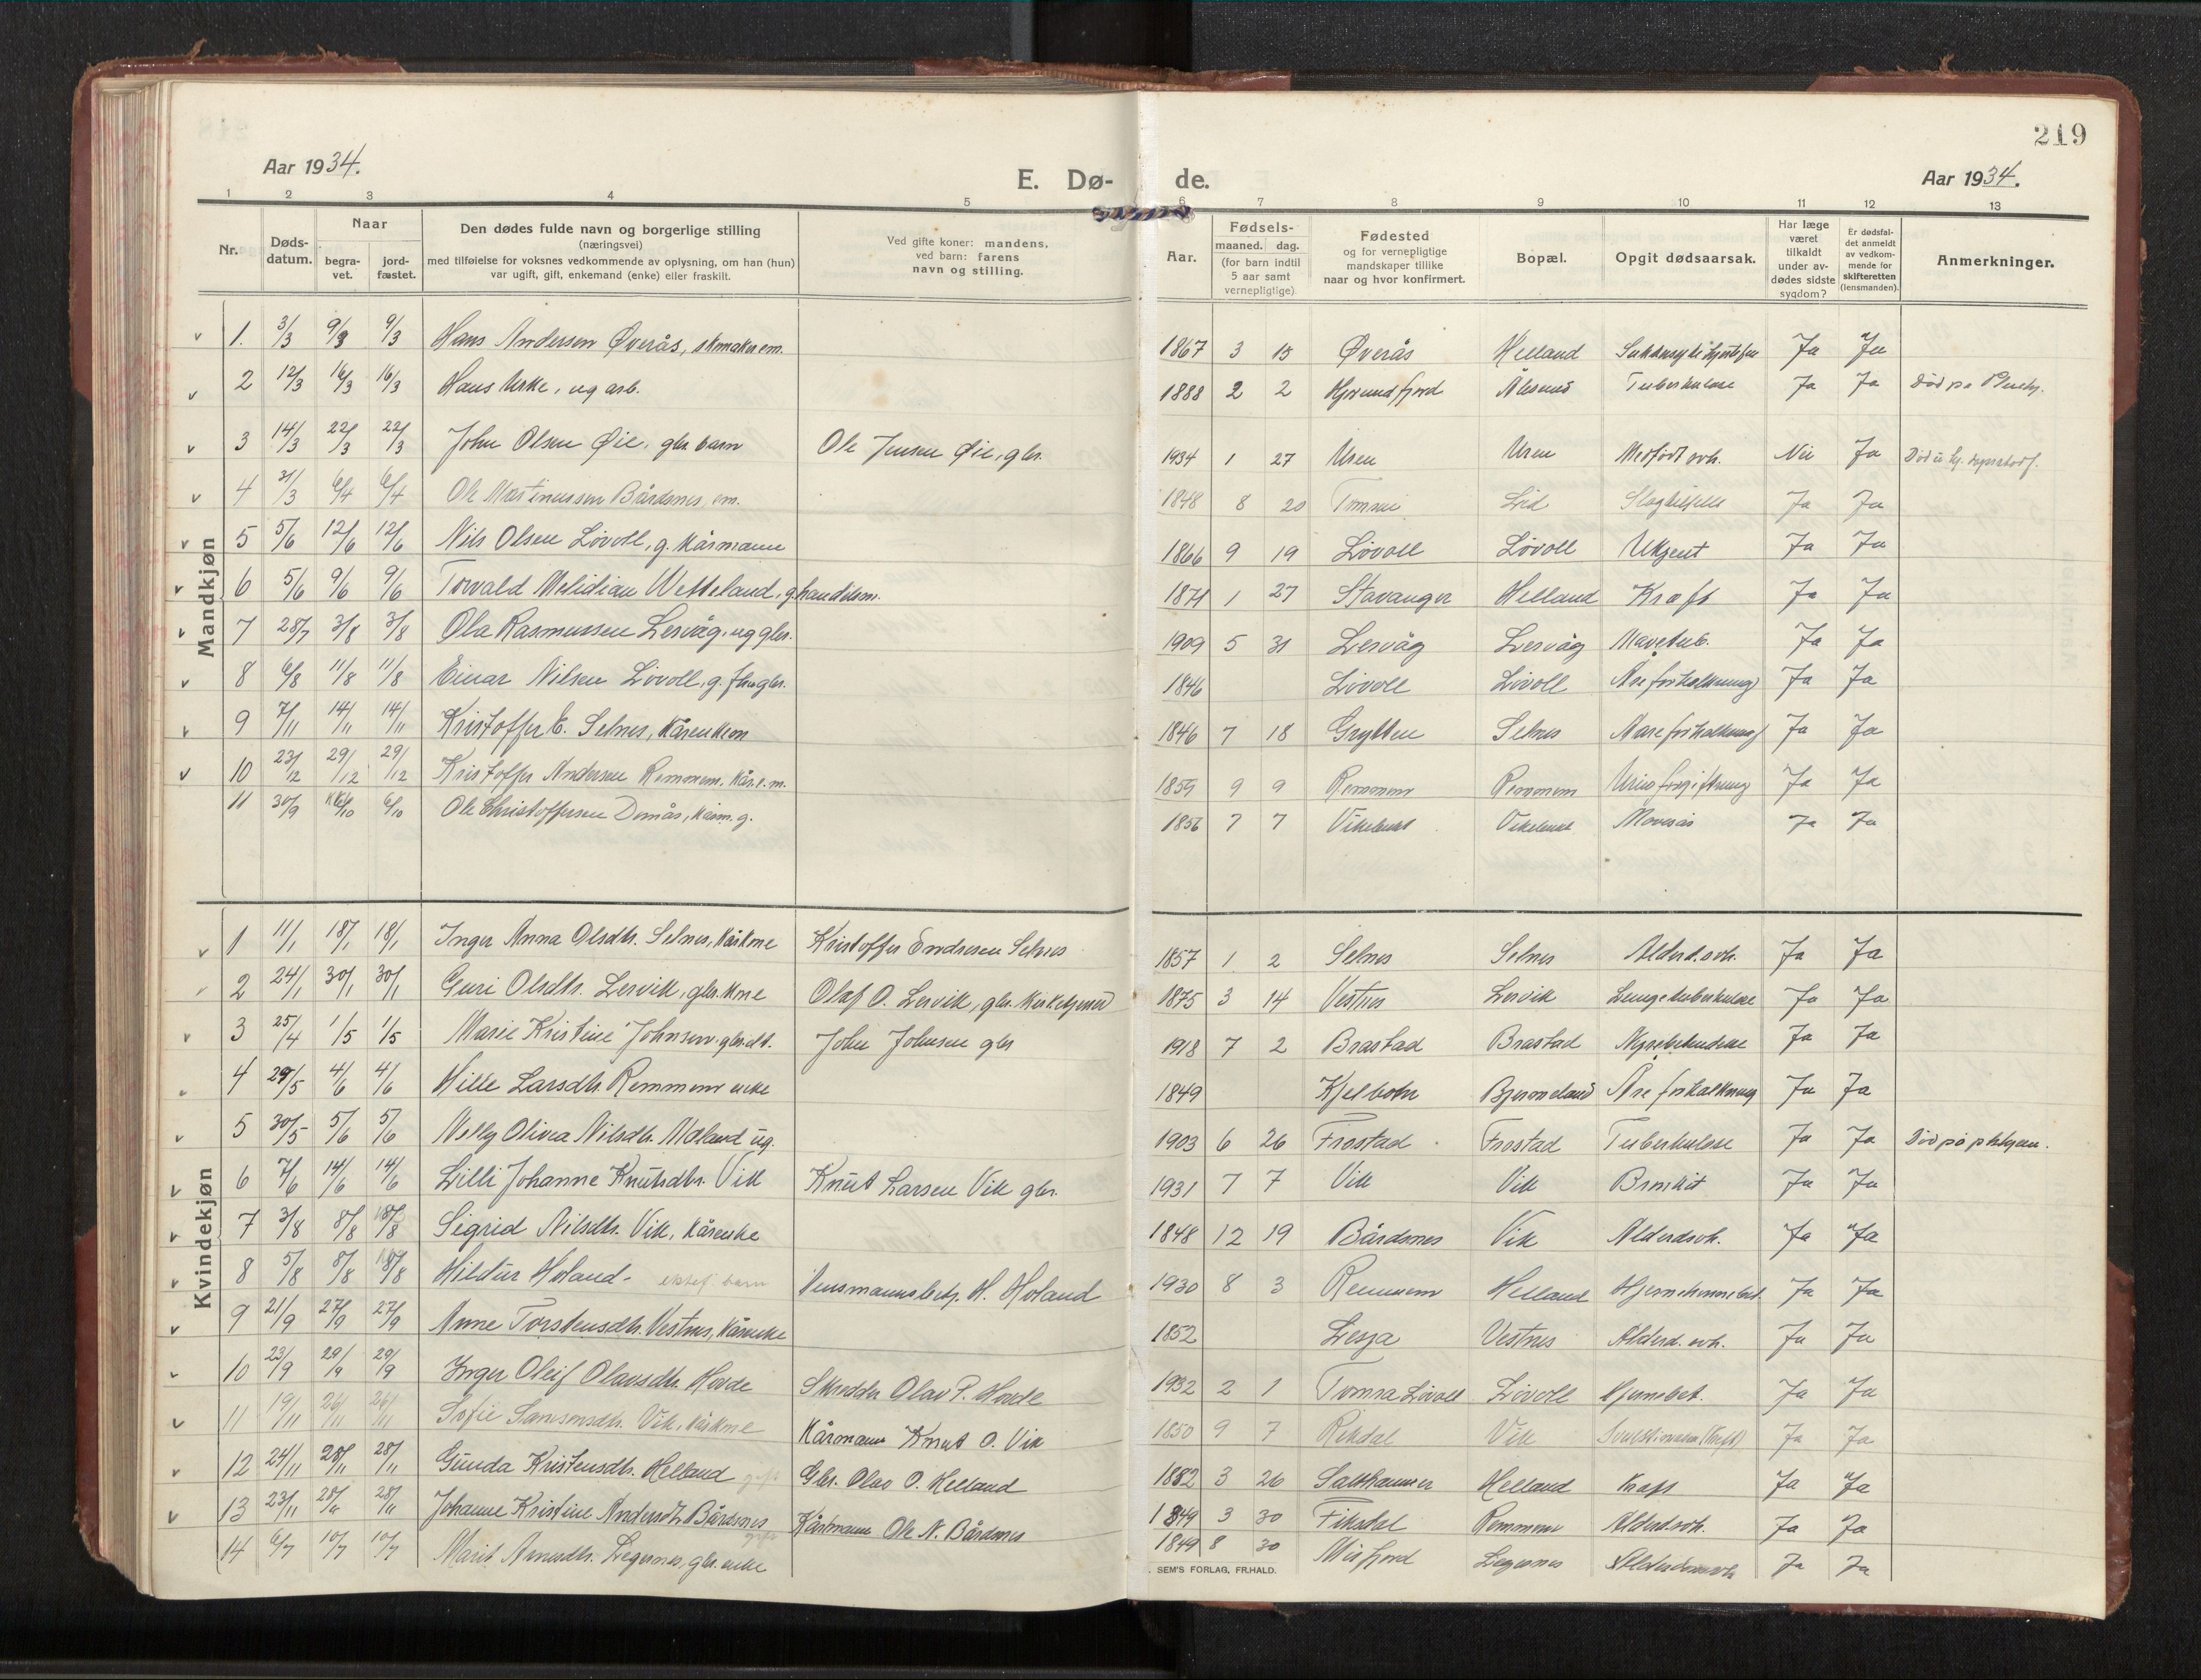 219
Aar 1934.
E. Dø-
de.
Aar 1934.
1 2 3 4 5 6 7 8 9 10 11 12 13
Nr.
Døds-
datum.
Naar
begra-
vet.
jord-
fæstet.
Den dødes fulde navn og borgerlige stilling
(næringsvei)
med tilføielse for voksnes vedkommende av oplysning, om han (hun)
var ugift, gift, enkemand (enke) eller fraskilt.
Ved gifte koner: mandens,
ved barn: farens
navn og stilling.
Aar.
Fødsels-
maaned. dag.
(for barn indtil
5 aar samt
vernepligtige)
Fødested
og for vernepligtige
mandskaper tillike
naar og hvor konfirmert.
Bopæl.
Opgit dødsaarsak.
Har læge
været
tilkaldt
under av-
dødes sidste
sygdom?
Er dødsfal-
det anmeldt
av vedkom-
mende for
skifteretten
(lensmanden).
Anmerkninger.
Mandkjøn
v 1. 3/3 9/3 9/3 Hans Andersen Øverås, skmaker em. 1867 3 15 Øverås Helland Ja Ja
v 2 12/3 16/3 16/3 Hans Urke, ug arb. 1888 2 2 Hjørundfjord Ålesund Tuberkulose Ja Ja Død på
v 3 14/3 22/3 22/3 John Olsen Øie, gbr. barn Ole Jensen Øie, gbr. 1934 1 27 Uren Uren Medfødt svh. Nei Ja
v 4 31/3 6/4 6/4 Ole Martinussen Bårdsnes, em. 1848 8 20 Lid Slagtilfelle Ja Ja
v 5 5/6 12/6 12/6 Nils Olsen Løvoll, g. kårmann 1866 9 19 Løvoll Løvoll Ukjent Ja Ja
v 6 5/6 9/6 9/6 Torvald Melidian Wetteland, g. handelsm. 1871 1 27 Stavanger Helland Kræft Ja Ja
v 7 28/7 3/8 3/8 Ola Rasmussen Lervåg, ug gbr. 1909 5 31 Lervåg Lervåg Mavetub. Ja Ja
v 8 6/8 11/8 11/8 Einar Nilsen Løvoll, g. gbr. 1846 Løvoll Løvoll Åreforkalkning Ja Ja
v 9 7/11 14/11 14/11 Kristoffer E. Selnes, kårenkem 1846 7 18 Grytten Selnes Åreforkalkning Ja Ja
v 10 23/12 29/12 29/12 Kristoffer Andersen Remmem, kår.e.m. 1859 9 9 Remmem Remmem Urinforgiftning Ja Ja
11 30/9 6/10 6/10 Ole Christoffersen Domås, kårm. g. 1856 7 7 Vikebukt Vikebukt Ja Ja
Kvindekjøn
v 1 11/1 18/1 18/1 Inger Anna Olsdtr. Selnes, kårkone Kristoffer Endresen Selnes 1857 1 2 Selnes Selnes Alderd.svh. Ja Ja
2 24/1 30/1 30/1 Guri Olsdtr. Lervik, gbr. kone Olaf O. Lervik, gbr. kirketjener 1875 3 14 Vestnes Lervik Lungetuberkulose Ja Ja
v 3 25/4 1/5 1/5 Marie Kristine Johnsen gbr.dt. John Johnsen gbr 1918 7 2 Brastad Brastad Ja Ja
4 29/5 4/6 4/6 Larsdtr Remmem enke 1849 Kjelbotn Bjermeland Åreforkalkning Ja Ja
v 5 30/5 5/6 5/6 Nelly Olivea Nilsdtr. ug. 1903 6 26 Frostad Frostad Tuberkulose Ja Ja Død på plehjem.
v 6 7/6 14/6 14/6 Lilli Johanne Knutsdtr. Vik Knut Larsen Vik gbr. 1931 7 7 Vik Vik Bronkit Ja Ja
v 7 3/8 8/8 8/8 Sigrid Nilsdtr. Vik, kårenke 1848 12 19 Bårdsnes Vik Alderdsvh. Ja Ja
v 8 5/8 8/8 8/8 Hildur Holand - ektef. barn lensmannsbetj. H. Holand 1930 8 3 Remmem Helland Hjernehinnebet. Ja Ja
v 9 21/9 27/9 27/9 Anne Torstensdtr. Vestnes, kårenke 1852 Lesja Vestnes Alderd. svh. Ja Ja
v 10 23/9 29/9 29/9 Inger Oleif Olavsdtr. Hovde Skredder Olav P. Hovde 1932 2 1 Tomra Løvoll Løvoll Hjernebet. Ja Ja
v 11 19/11 26/11 26/11 Sofie Samsonsdtr. Vik, kårkone Kårmann Knut O. Vik 1850 9 7 Rekdal Vik Ja Ja
v 12 24/11 28/11 28/11 Gunda Kristensdtr. Helland gift Gbr. Olav O. Helland 1882 3 26 Salthammer Helland Kræft Ja Ja
v 13 23/11 28/11 28/11 Johanne Kristine Andersdtr. Bårdsnes gift Kårmann Ole N. Bårdsnes 1849 3 30 Fiksdal Remmem Alderdsvh. Ja Ja
14 6/7 10/7 10/7 Marit Arnesdtr. Legernes, gbr. enke 1849 8 30 Misfjord Legernes Alderdomsvh Ja Ja
SEM'S FORLAG, FR.HALD.